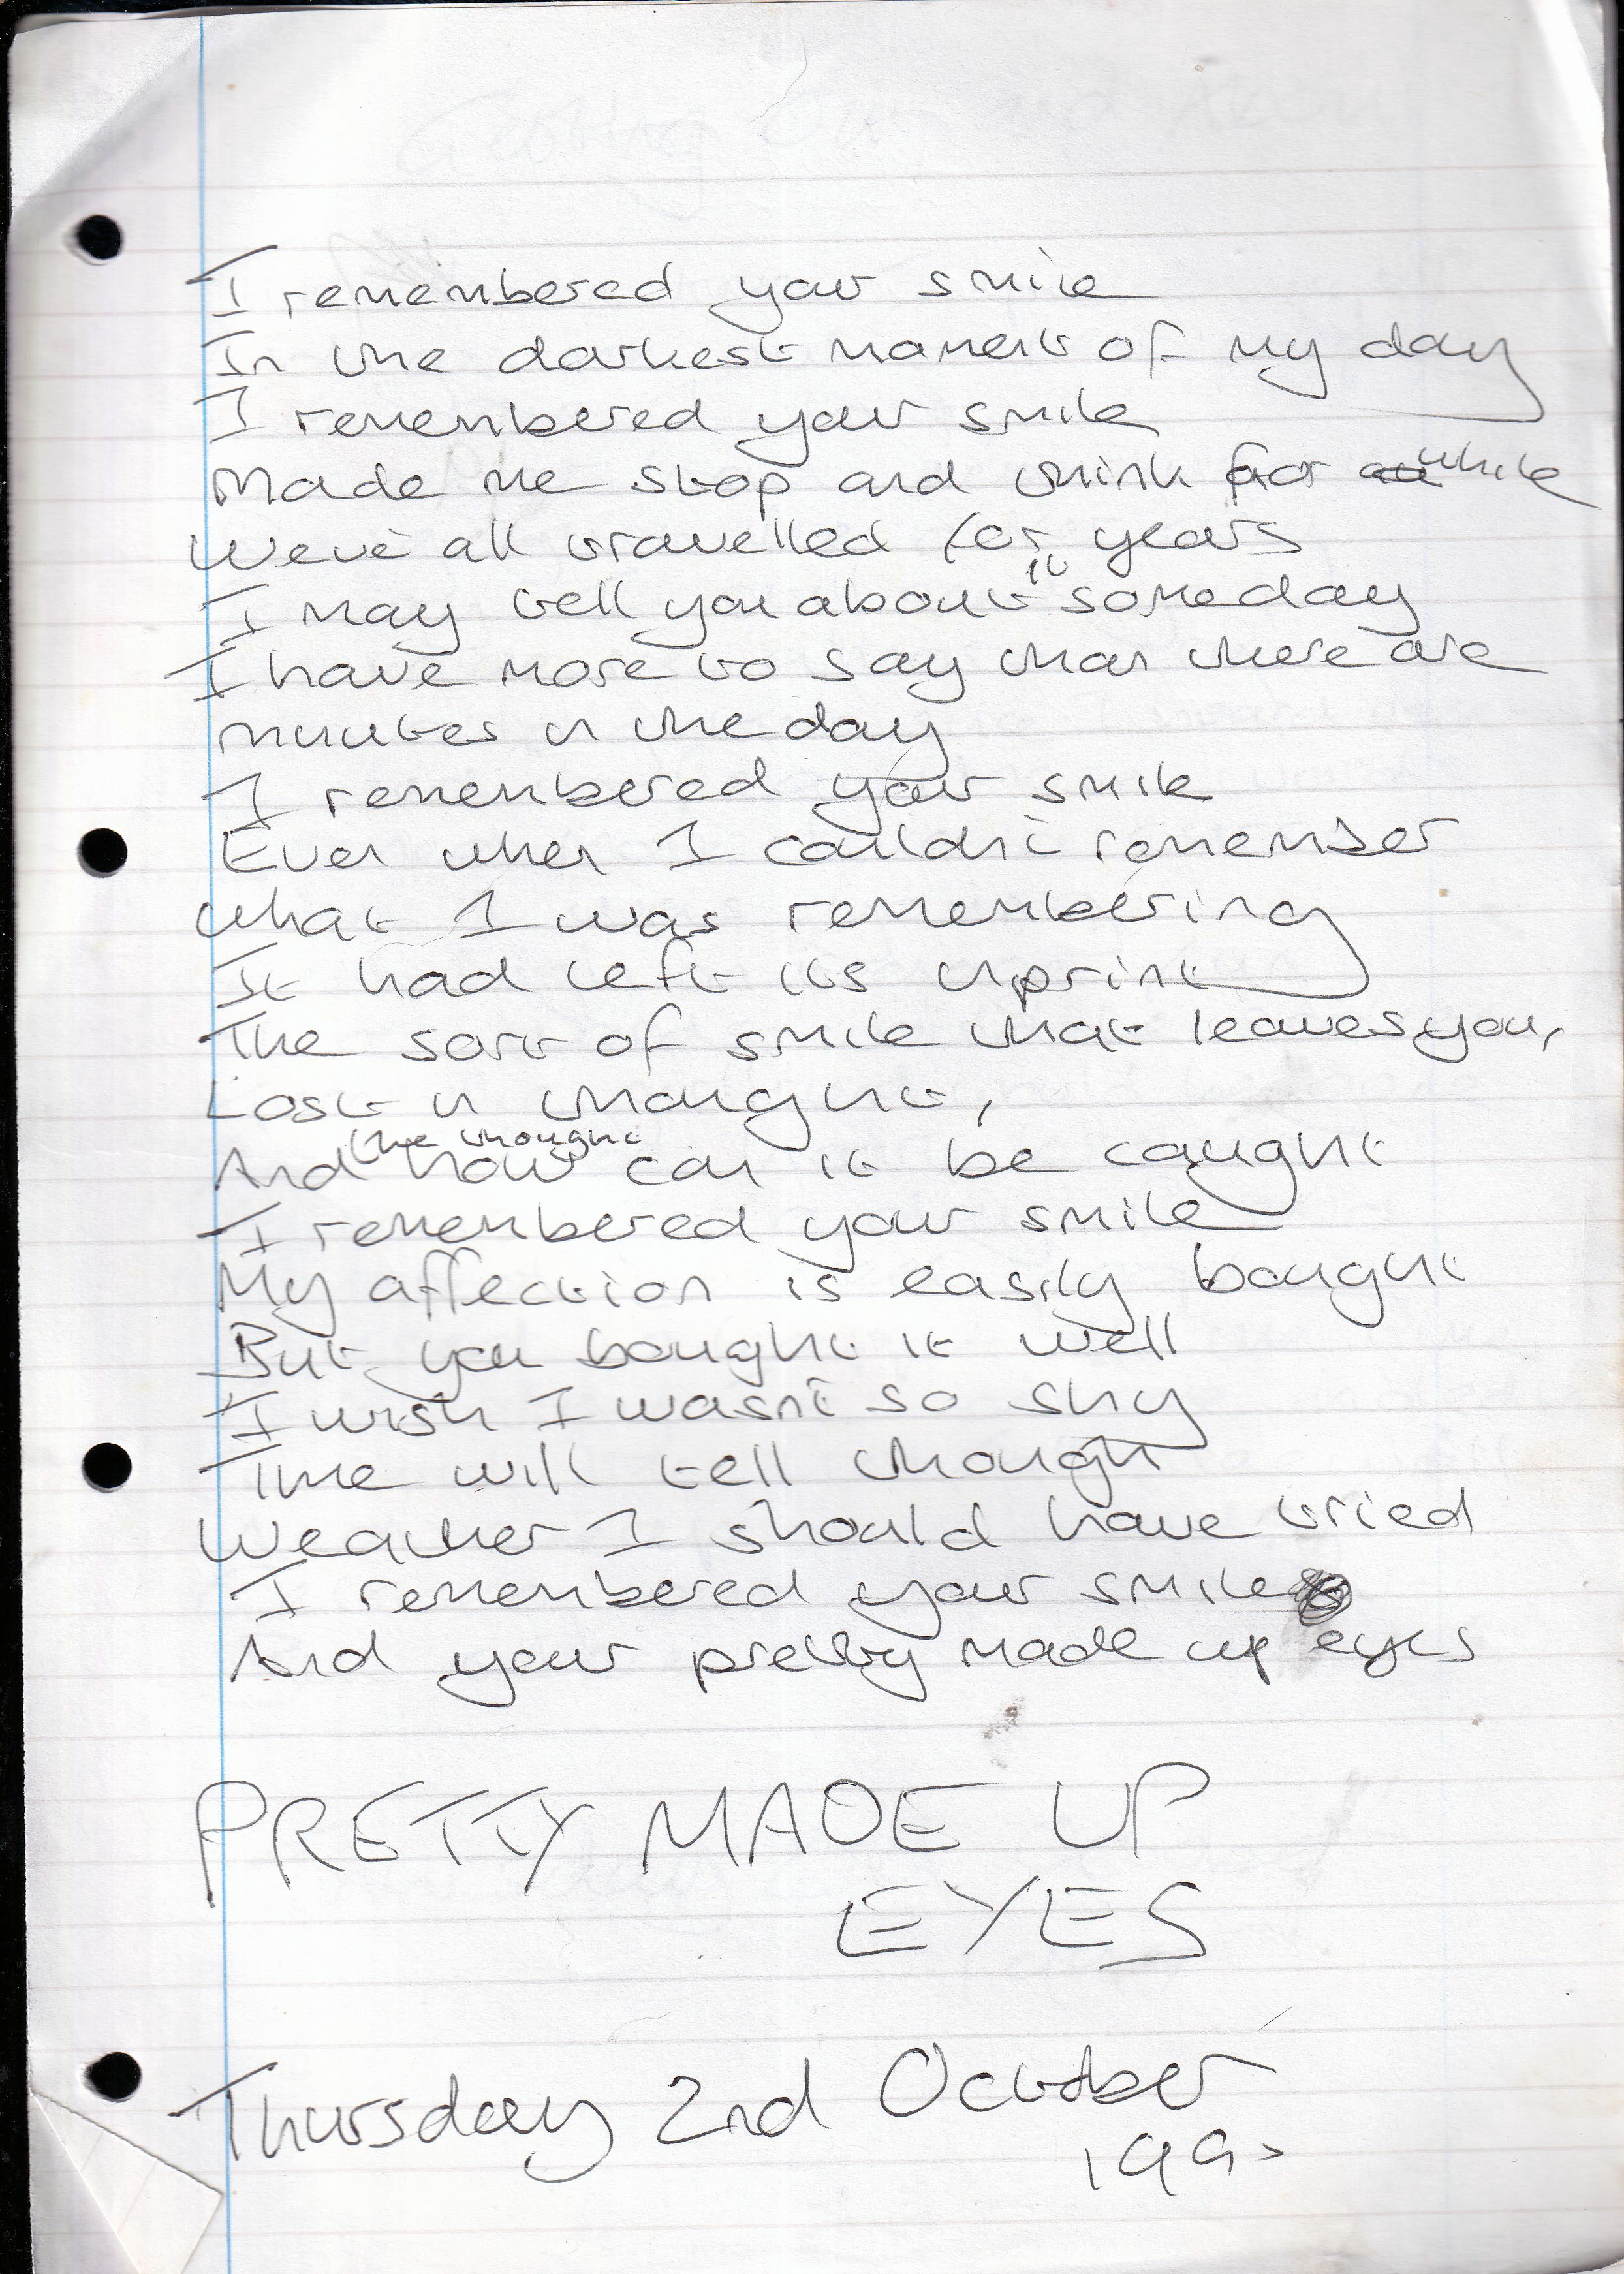 I remembered your smile
In the darkest moment of my day
I remembered your smile
Made me stop and think for while
We've all travelled for years
I may tell you about it someday
I have more to say than there are
minutes in the day
I remembered your smile
Even when I couldn't remember
what I was remembering
It had left its inprint
The sort of smile that leaves you,
Lost in thought,
And the thought how can it be caught
I remembered your smile
My affection is easily bought
But you bought it well
I wish I wasn't so shy
Time will tell though
Weather I should have tried
I remembered your smile
And your pretty made up eyes
PRETTY MADE UP
EYES
Thursday 2nd October